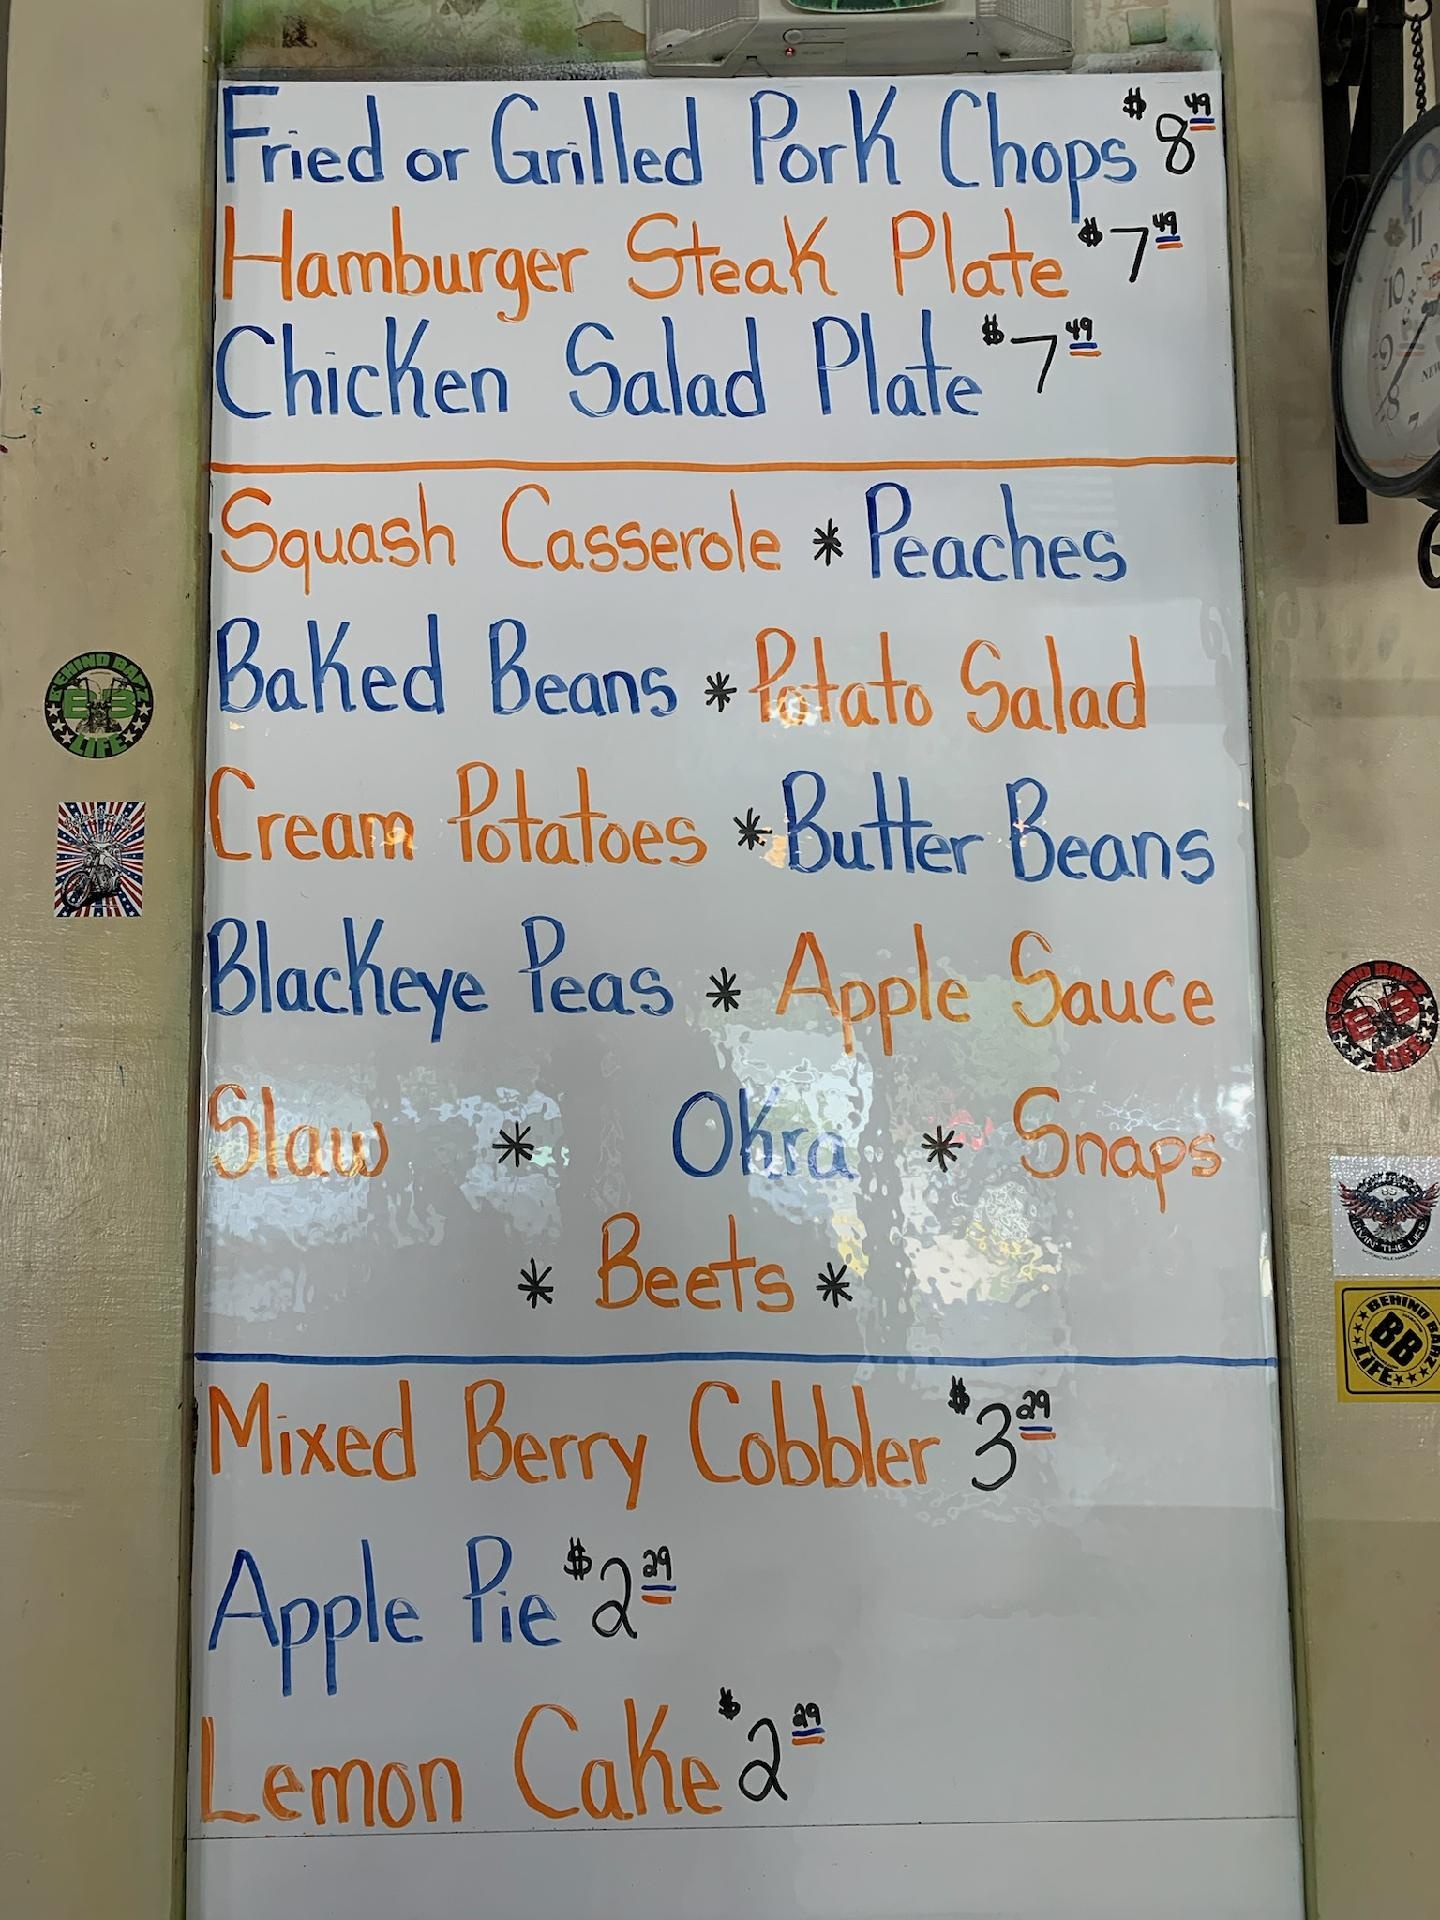 Fried or Grilled Pork Chops $8 49
Hamburger Steak Plate $7 49
Chicken Salad Plate $7 49
Squash Casserole * Peaches
Baked Beans * Potato Salad
Cream Potatoes * Butter Beans
Blackeye Peas * Apple Sauce
Slaw * Okra * Snaps
* Beets *
Mixed Berry Cobbler $3 29
Apple Pie $2 29
Lemon Cake $2 29
BEHIND BARZ
BB
LIFE
BEHIND BARZ
BB
LIFE
LIVIN' THE LIFE
BEHIND BARZ
BB
LIFE
11
10
9
8
7